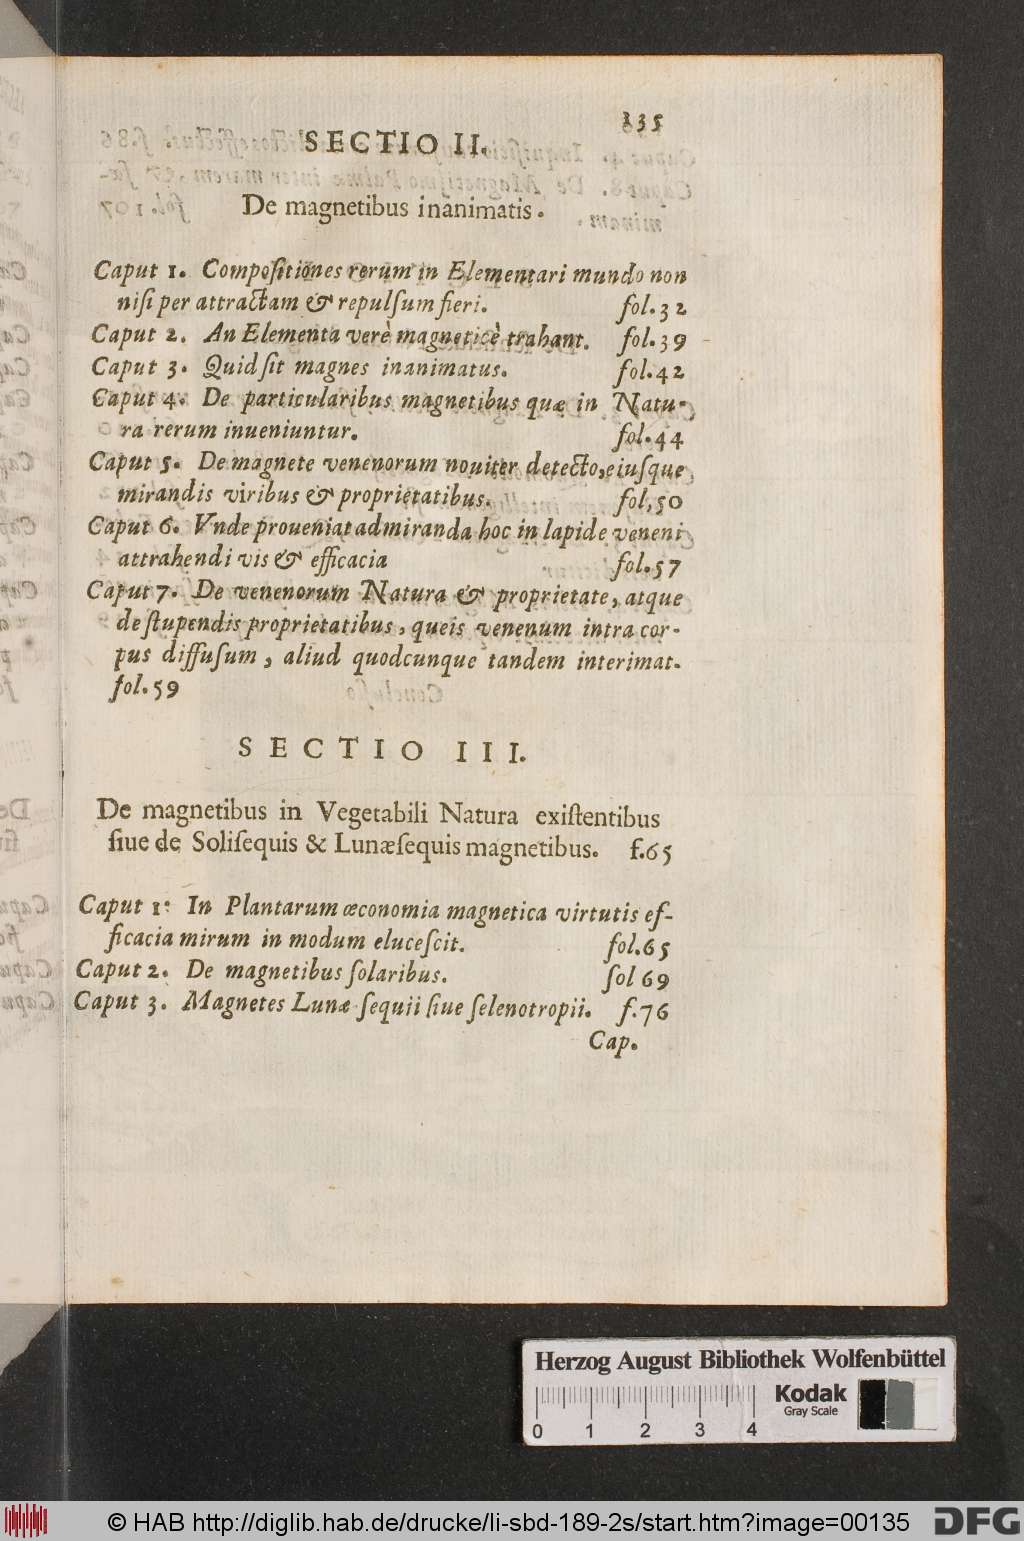 135
SECTIO II.
De magnetibus inanimatis.
Caput 1. Compoſitiones rerum in Elementari mundo non
niſi per attractam & repulſum fieri. fol.32
Caput 2. An Elementa verè magneticè trahant. fol.39
Caput 3. Quid ſit magnes inanimatus. fol.42
Caput 4. De particularibus magnetibus quæ in Natu-
ra rerum inueniuntur. fol.44
Caput 5. De magnete venenorum nouiter detecto, eiuſque
mirandis viribus & proprietatibus. fol,50
Caput 6. Vnde proueniat admiranda hoc in lapide veneni
attrahendi vis & efficacia fol.57
Caput 7. De venenorum Natura & proprietate, atque
de ſtupendis proprietatibus, queis venenum intra cor-
pus diffuſum, aliud quodcunque tandem interimat.
fol.59
SECTIO III.
De magnetibus in Vegetabili Natura exiſtentibus
ſiue de Soliſequis & Lunæſequis magnetibus. f.65
Caput 1: In Plantarum œconomia magnetica virtutis ef-
ficacia mirum in modum eluceſcit. fol.65
Caput 2. De magnetibus ſolaribus. fol 69
Caput 3. Magnetes Lunæ ſequii ſiue ſelenotropii. f.76
Cap.
Herzog August Bibliothek Wolfenbüttel
Kodak
Gray Scale
0 1 2 3 4
© HAB http://diglib.hab.de/drucke/li-sbd-189-2s/start.htm?image=00135
DFG